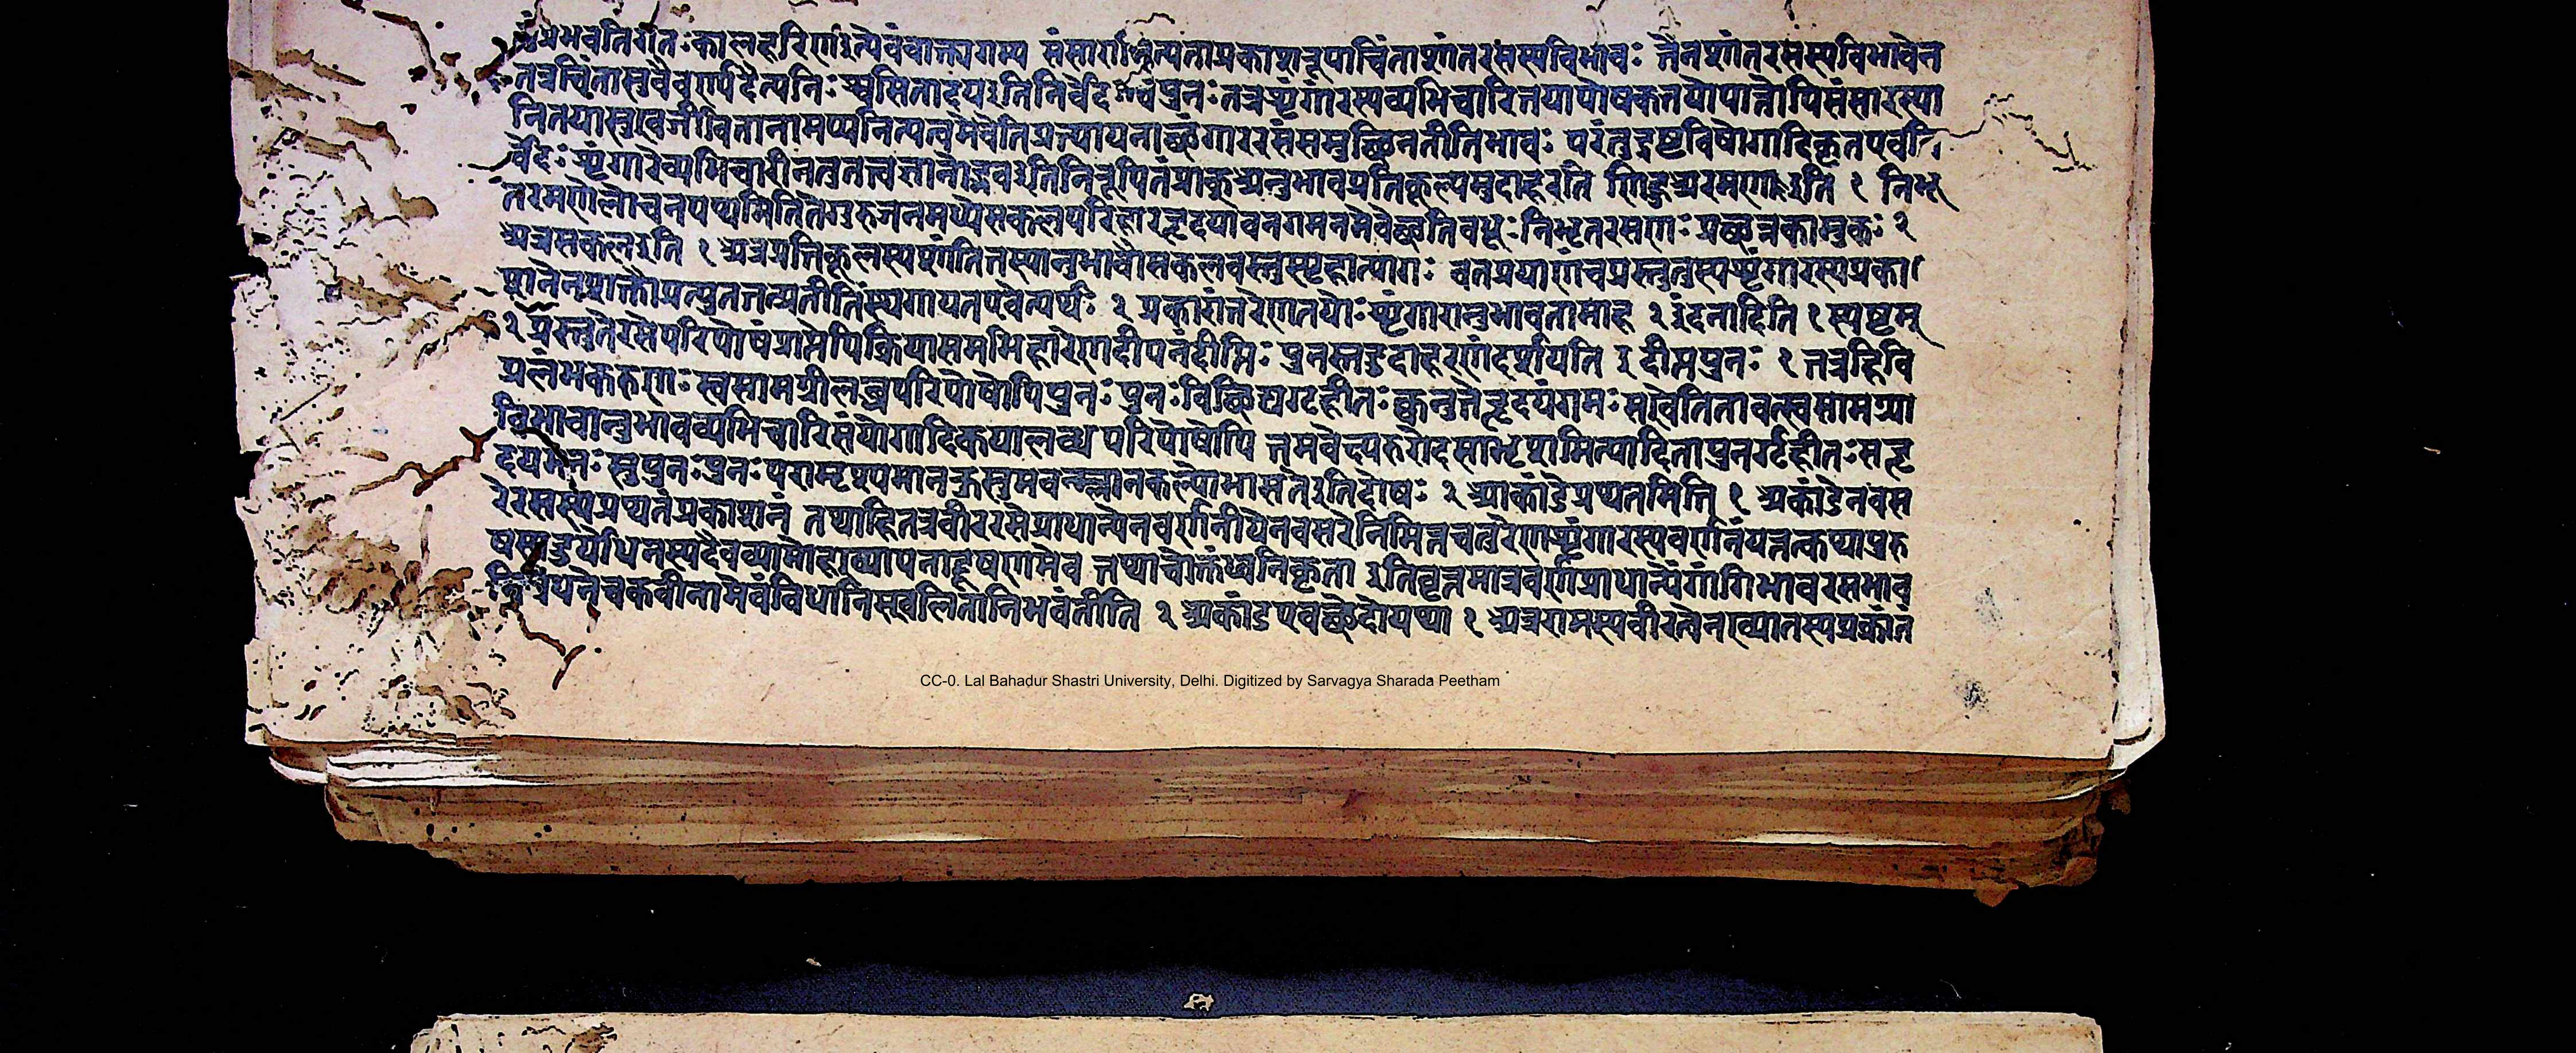 प्रभवतिगतःकालहरिणइत्येवंवाक्यगम्य संसारानित्यताप्रकाशरूपाचिंताशांतरसस्यविभावः तेनशांतरसस्यविभावेन
तत्रचिंतासुवैवर्ण्यदैन्यनिःश्वसितादय इतिनिर्वेद पुनः तत्रशृंगारस्यव्यभिचारितयापोषकतयोपात्तोपिसंसारस्या
नित्यतयास्तु जीवितानामप्यनित्यत्वमेवेतिप्रत्यायनाच्छृंगाररसंसमुच्छिनतीतिभावः परंतुदृष्टवियोगादिकृतएवनि
र्वेदः शृंगारेव्यभिचारीनतुतत्त्वज्ञानोद्भवइतिनिरूपितंप्राक् अनुभावप्रातिकूल्यमुदाहरति णिहुअरमण इति १ निभृ
तरमणेलोचनपथमितितेगुरुजनमध्येसकलपरिहारहृदयावनगमनमेवेच्छतिवधूः निभृतरमणः प्रच्छन्नकामुकः २
अत्रसकलइति १ अत्रप्रतिकूलस्यशांतितस्यानुभावौसकलवस्तुस्पृहात्यागः वनप्रयाणंचप्रस्तुतस्यशृंगारस्यप्रका
शनेनशक्तौप्रत्युततत्प्रतीतिंस्थगयतएवेत्यर्थः २ प्रकारांतरेणतयोः शृंगारानुभावतामाह २ इंधनादिति १ स्पष्टम्
२ प्रस्तुतेरसेपरिपोषंप्राप्तेपिक्रियासमभिहारेणदीपनंदीप्तिः पुनस्तदुदाहरणंदर्शयति इ दीप्तपुनः १ तत्रहिवि
प्रलंभकरुणः स्वसामग्रीलब्धपरिपोषोपिपुनः पुनः विच्छिद्यगृहीतः कुतुनहृदयंगमः सचेतितावत्स्वसामग्र्या
विभावानुभावव्यभिचारिसंयोगादिकयालब्धपरिपोषोपि तमवेक्ष्यरुरोदसाभृशमित्यादितापुनर्गृहीतः सहृ
दयमनः सुपुनः पुनः परामृश्यमानकुसुमवन्म्लानकल्पोभासतेइतिदोषः २ आकांडेप्रथनमिति १ अकांडेनवस
रेरसस्यप्रथनंप्रकाशनं तथाहितत्रवीररसेप्राधान्येनवर्णनीयेनवसरेनिमित्तचतुरेणशृंगारस्यवर्णनंयत्तत्कथापुरु
षस्यदुर्योधनस्यदैवव्यामोहाख्यापनाद्दूषणमेव तथाचोक्तंध्वनिकृता इतिवृत्तमात्रवर्णप्राधान्येंगांगिभावरसभाव
निबंधनेचकवीनामेवंविधानिस्खलितानिभवंतीति २ अकांडएवच्छेदोयथा १ अत्ररामस्यवीरत्वेनाख्यातस्यप्रक्रांतं
CC-0. Lal Bahadur Shastri University, Delhi. Digitized by Sarvagya Sharada Peetham